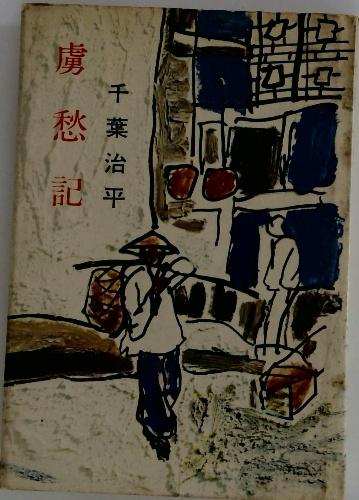 虜愁記
千葉治平